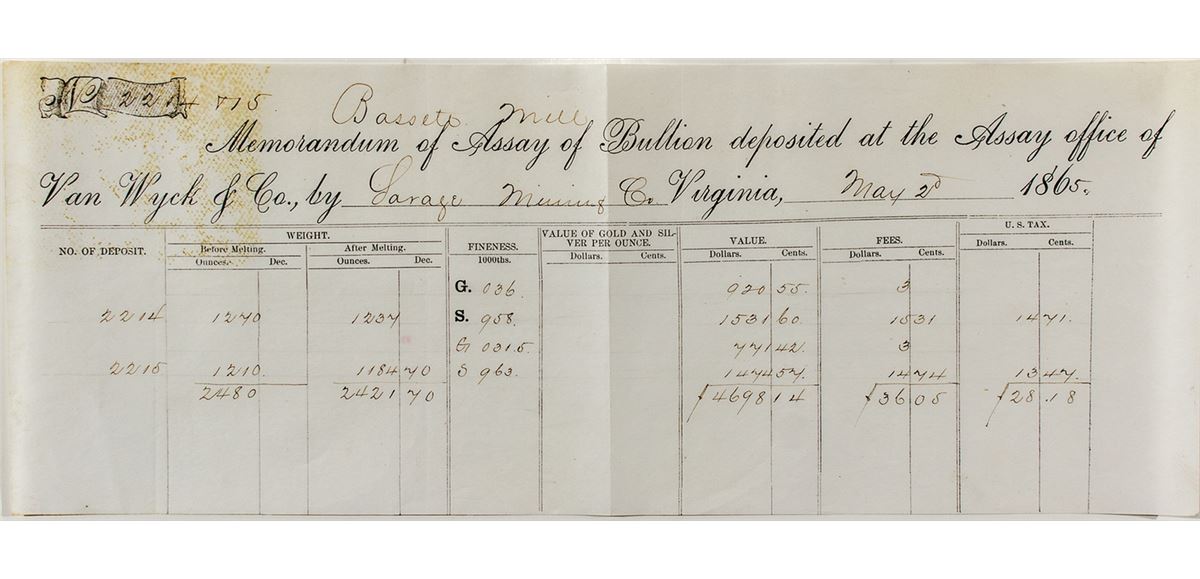 No 2214 & 15
Bassets Mill
Memorandum of Assay of Bullion deposited at the Assay office of
Van Wyck & Co., by Savage Mining Co. Virginia, May 2d 1865.
NO. OF DEPOSIT. WEIGHT. FINENESS. VALUE OF GOLD AND SIL-VER PER OUNCE. VALUE. FEES. U.S. TAX.
Before Melting. After Melting. 1000ths. Dollars. Cents. Dollars. Cents. Dollars. Cents. Dollars. Cents.
Ounces. Dec. Ounces. Dec.
G. 036. 920 55. 3
2214 1270 1237 S. 958. 1531 60. 15 31 14 71.
G 031.5. 771 42. 3
2215 1210. 1184 70 S 963. 1474 57. 14 74 13 47.
2480 2421 70 $4698 14 $36 05 $28.18